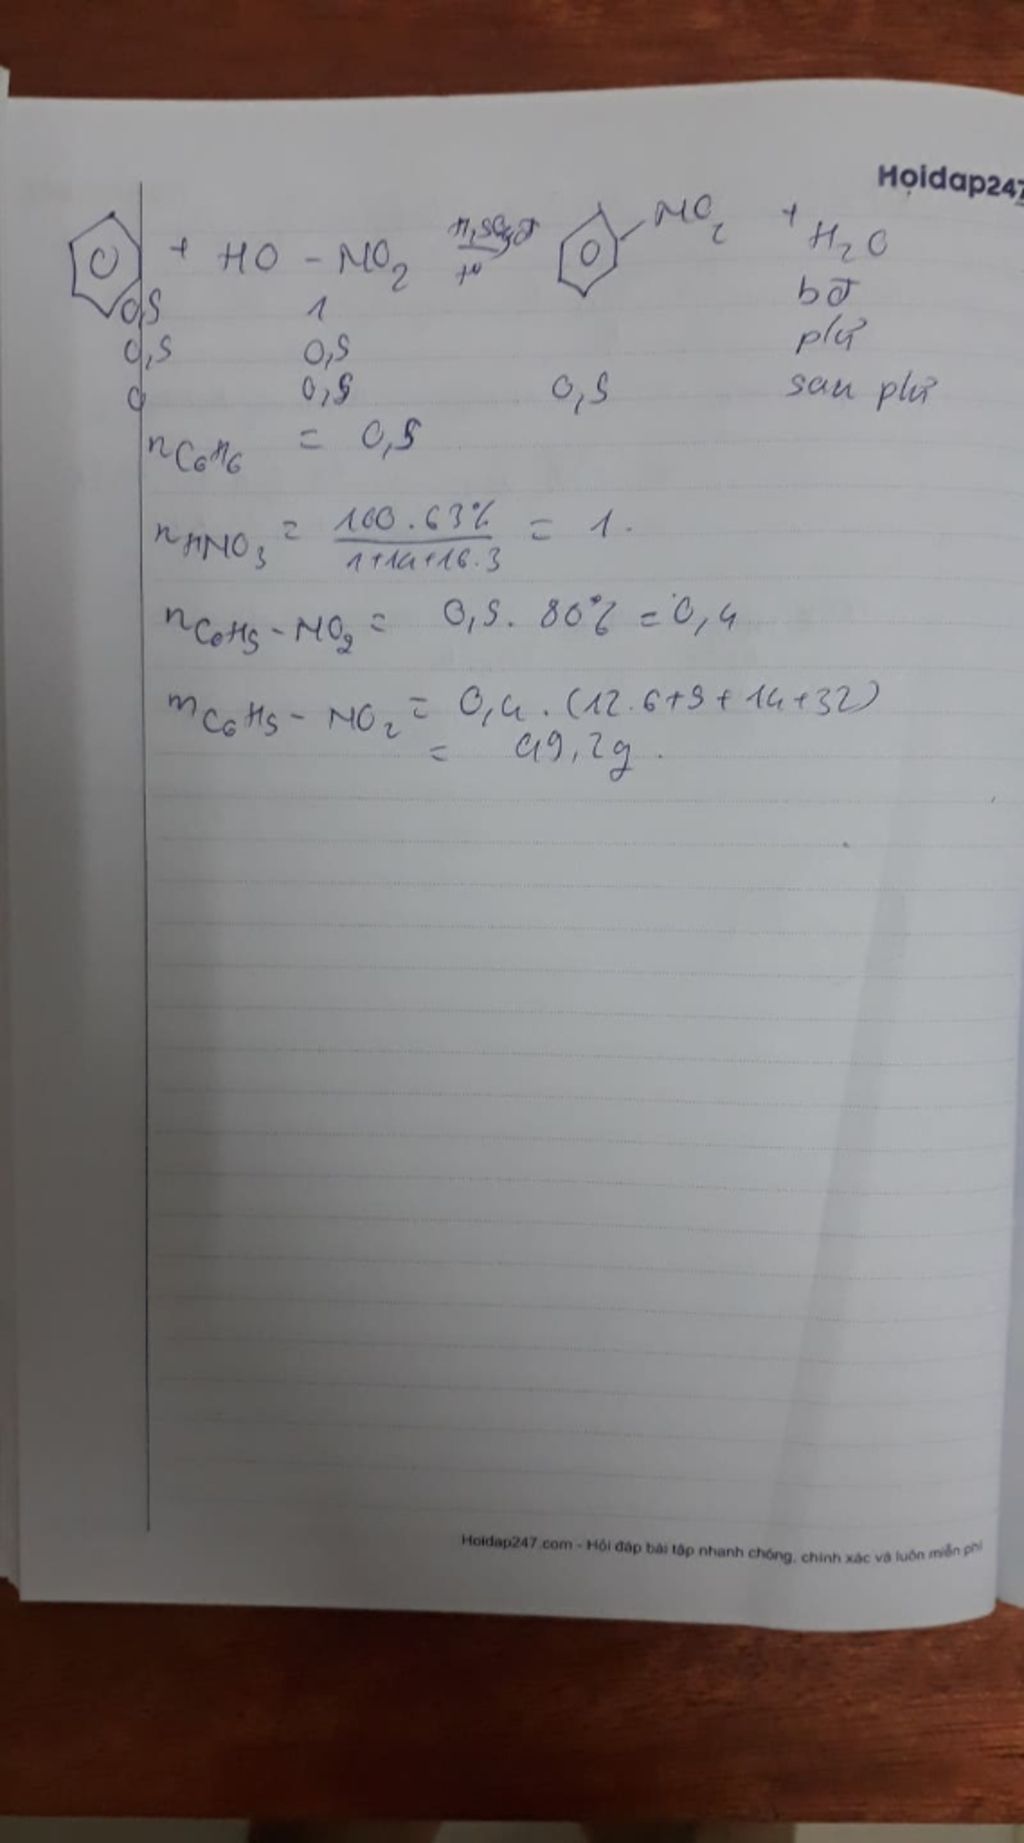 Hoidap247
+ HO - NO2 H2SO4đ t° NO2 + H2O
0,5 1 bđ
0,5 0,5 pứ
0 0,5 0,5 sau pứ
nC6H6 = 0,5
nHNO3 = 100.63% / 1+14+16.3 = 1.
nC6H5-NO2 = 0,5. 80% = 0,4
mC6H5-NO2 = 0,4.(12.6+5+14+32)
= 49,2g.
Hoidap247.com - Hỏi đáp bài tập nhanh chóng, chính xác và luôn miễn phí